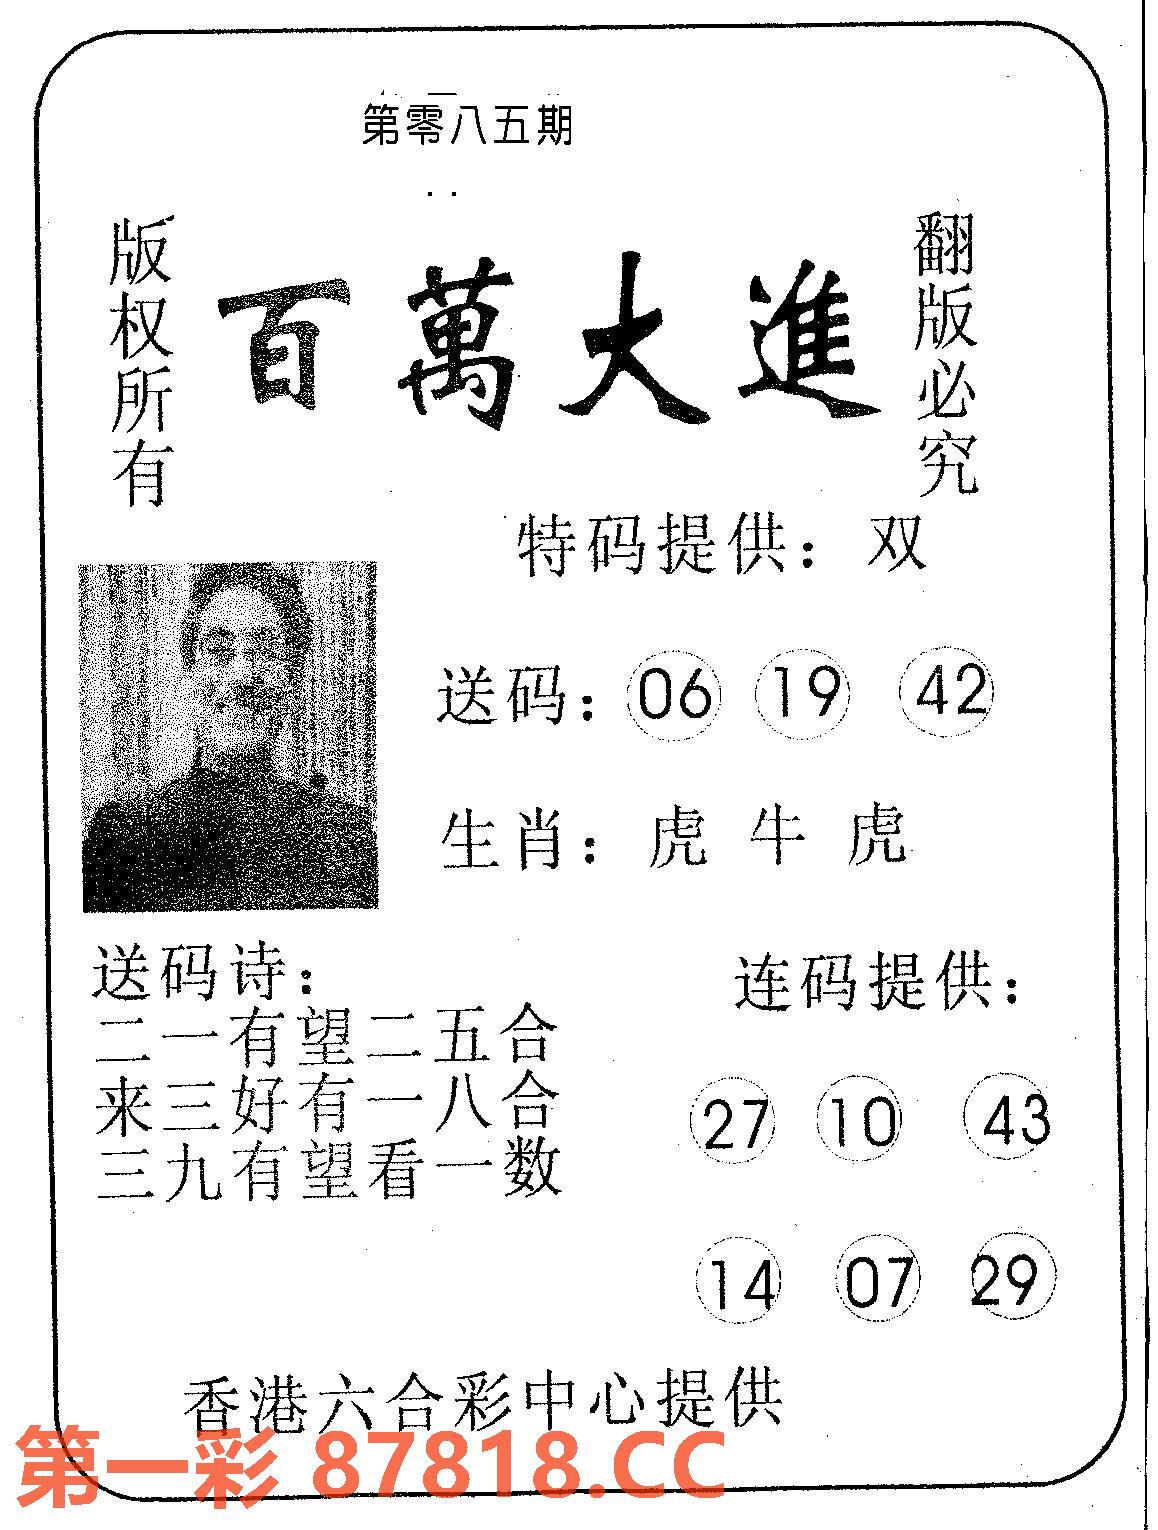 第零八五期
版权所有
百萬大進
翻版必究
特码提供：双
送码：06 19 42
生肖：虎 牛 虎
送码诗：
二一有望二五合
来三好有一八合
三九有望看一数
连码提供：
27 10 43
14 07 29
香港六合彩中心提供
第一彩 87818.CC